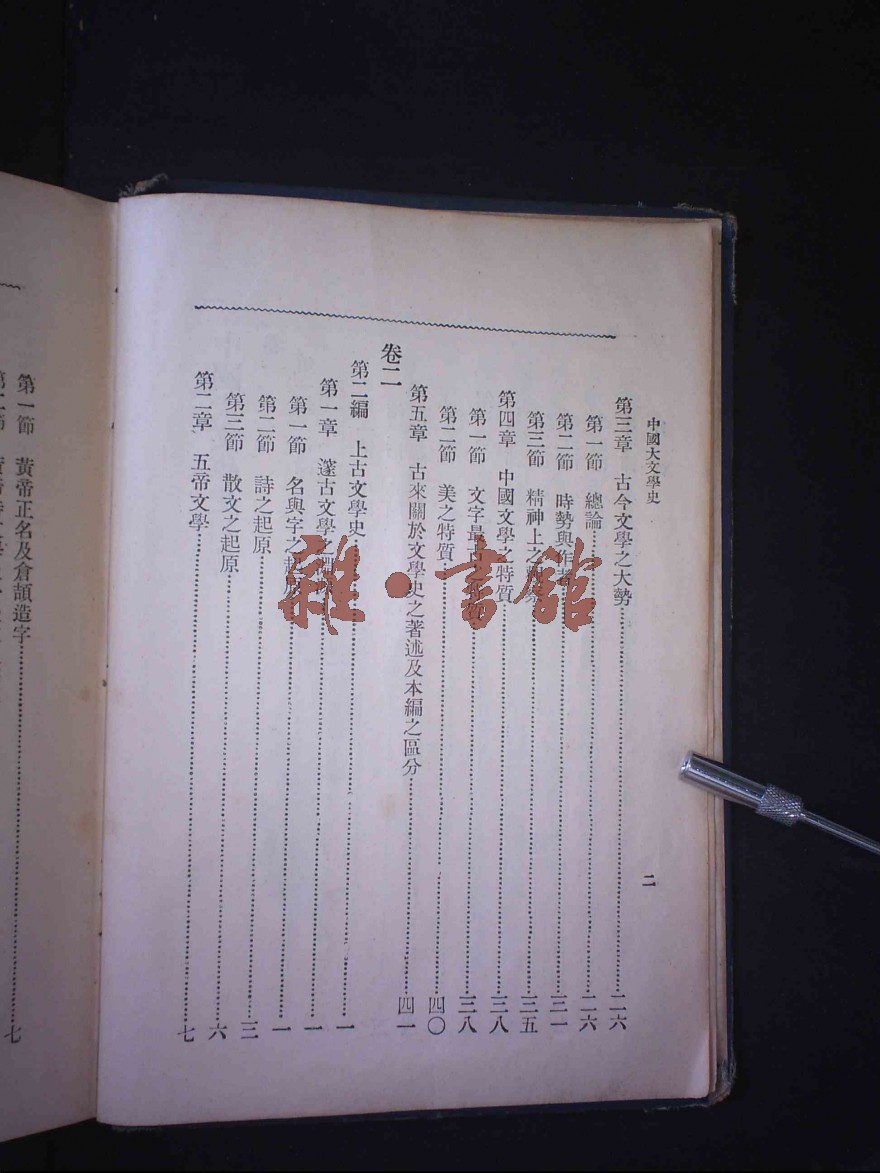 中國大文學史
二
第三章 古今文學之大勢 二六
第一節 總論 二六
第二節 時勢與作者 三一
第三節 精神上之 三五
第四章 中國文學之特質 三八
第一節 文字最古 三八
第二節 美之特質 四〇
第五章 古來關於文學史之著述及本編之區分 四一
卷二
第二編 上古文學史 一
第一章 邃古文學之 一
第一節 名與字之起原 一
第二節 詩之起原 三
第三節 散文之起原 六
第二章 五帝文學 七
第一節 黃帝正名及倉頡造字 七
雜·書館